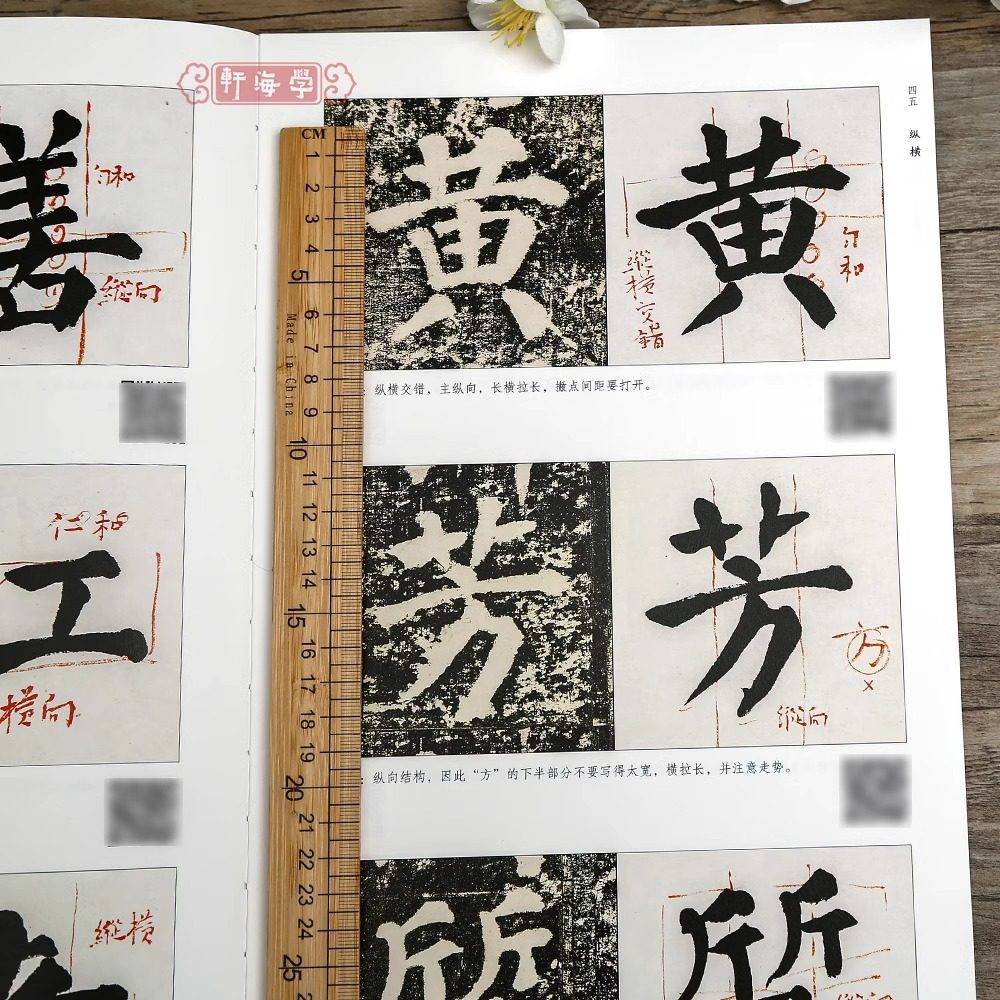 學海軒
四五 纵横
善
匀和
縱向
CM
1
2
3
4
5
6
7
8
9
10
11
12
13
14
15
16
17
18
19
20
21
22
23
24
25
Made in China
黄
黄
匀和
縱橫交錯
：纵横交错，主纵向，长横拉长，撇点间距要打开。
工
横向
芳
芳
方
×
縱向
：纵向结构，因此“方”的下半部分不要写得太宽，横拉长，并注意走势。
縱橫
所
所